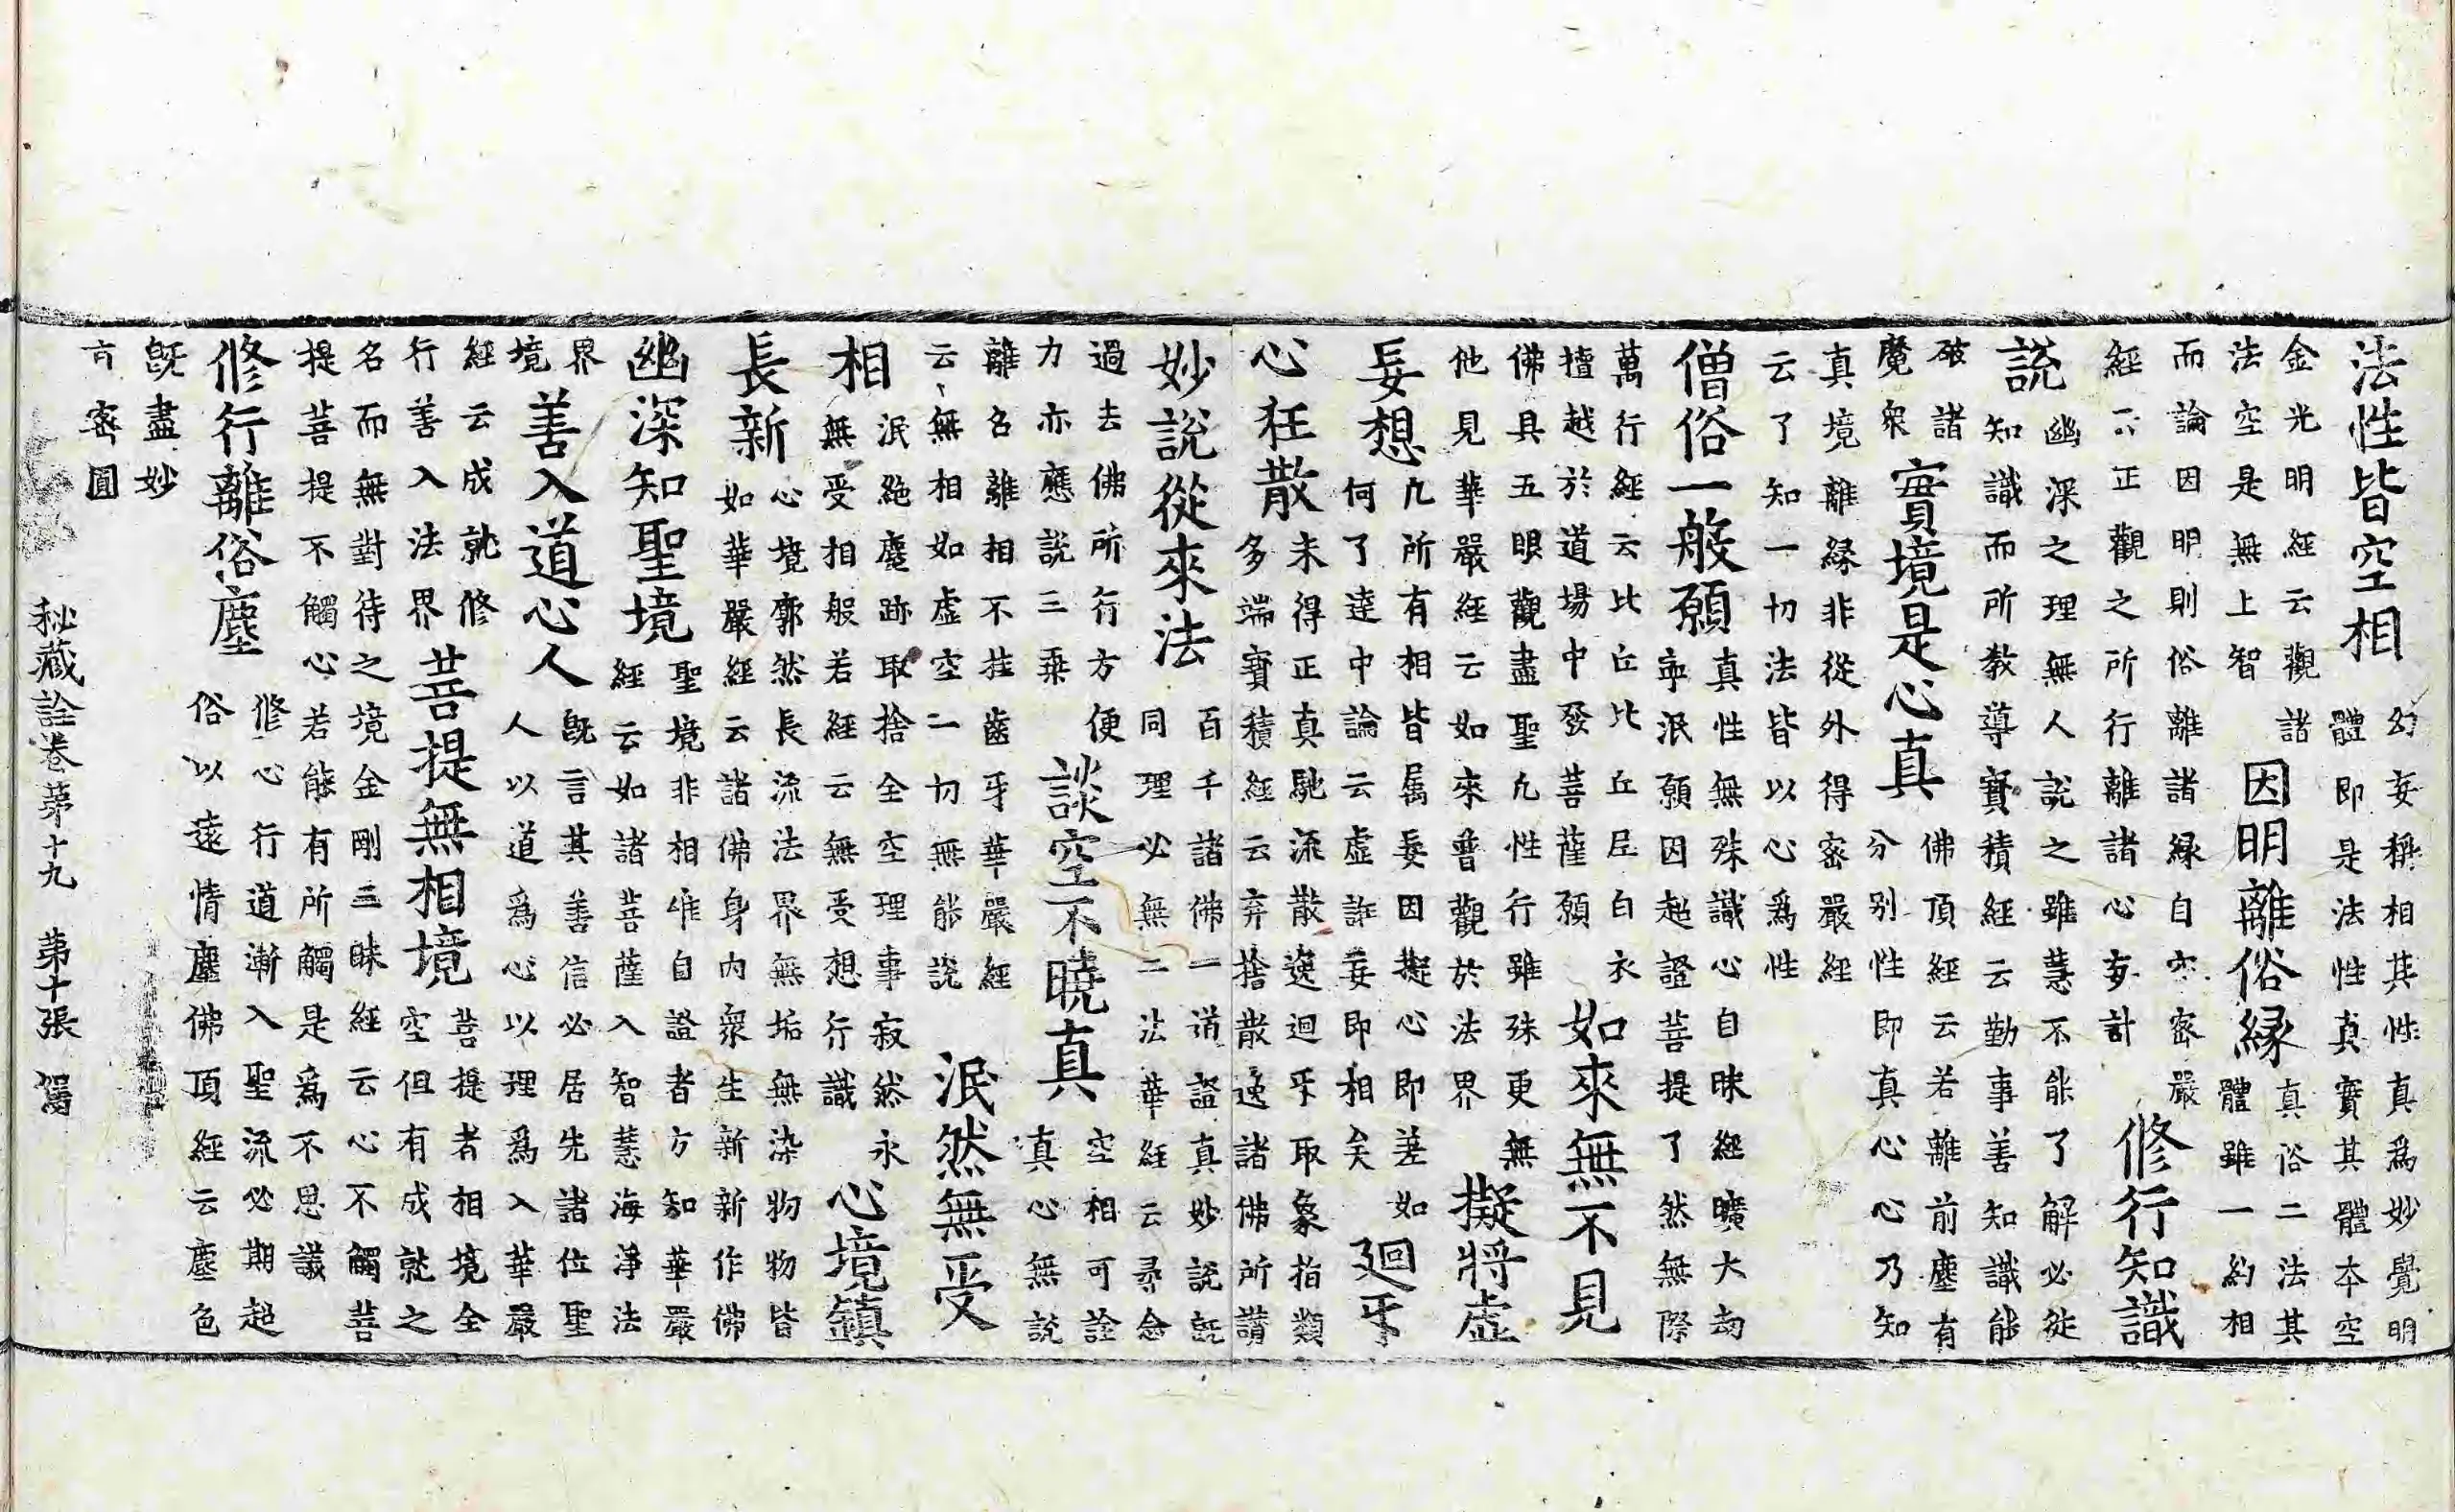 法性皆空相
幻妄稱相其性真為妙覺明
體即是法性真實其體本空
金光明經云觀諸
法空是無上智
因明離俗緣
真俗二法其
體雖一約相
而論因明則俗離諸緣自空密嚴
經云正觀之所行離諸心妄計
修行知識
說
幽深之理無人說之雖慧不能了解必從
知識而所教導寶積經云勤事善知識能
破諸
魔衆
實境是心真
佛頂經云若離前塵有
分別性即真心心乃知
真境離緣非從外得密嚴經
云了知一切法皆以心為性
僧俗一般願
真性無殊識心自昧經曠大劫
寧泯願因超證菩提了然無際
萬行經云比丘比丘尼白衣
擅越於道場中發菩薩願
如來無不見
佛具五眼觀盡聖凡性行雖殊更無
他見華嚴經云如來普觀於法界
擬將虛
妄想
凡所有相皆屬妄因擬心即差如
何了達中論云虛詐妄即相矣
迴牙
心狂散
未得正真馳流散逸迴牙取象指類
多端寶積經云弃捨散逸諸佛所讃
妙說從來法
百千諸佛一道證真妙說既
同理必無二法華經云尋念
過去佛所行方便
力亦應說三乗
談空不曉真
空相可詮
真心無說
離名離相不挂齒牙華嚴經
云無相如虛空一切無能說
泯然無受
相
泯絕塵跡取捨全空理事寂然永
無受相般若經云無受想行識
心境鎮
長新
心境廓然長流法界無垢無染物物皆
如華嚴經云諸佛身内衆生新新作佛
幽深知聖境
聖境非相唯自證者方知華嚴
經云如諸菩薩入智慧海淨法
界
境
善入道心人
既言其善信必居先諸位聖
人以道為心以理為入華嚴
經云成就修
行善入法界
菩提無相境
菩提者相境全
空但有成就之
名而無對待之境金剛三昧經云心不觸菩
提菩提不觸心若能有所觸是為不思議
修行離俗塵
修心行道漸入聖流必期超
俗以遠情塵佛頂經云塵色
既盡妙
密圓
秘藏詮卷第十九 第十張